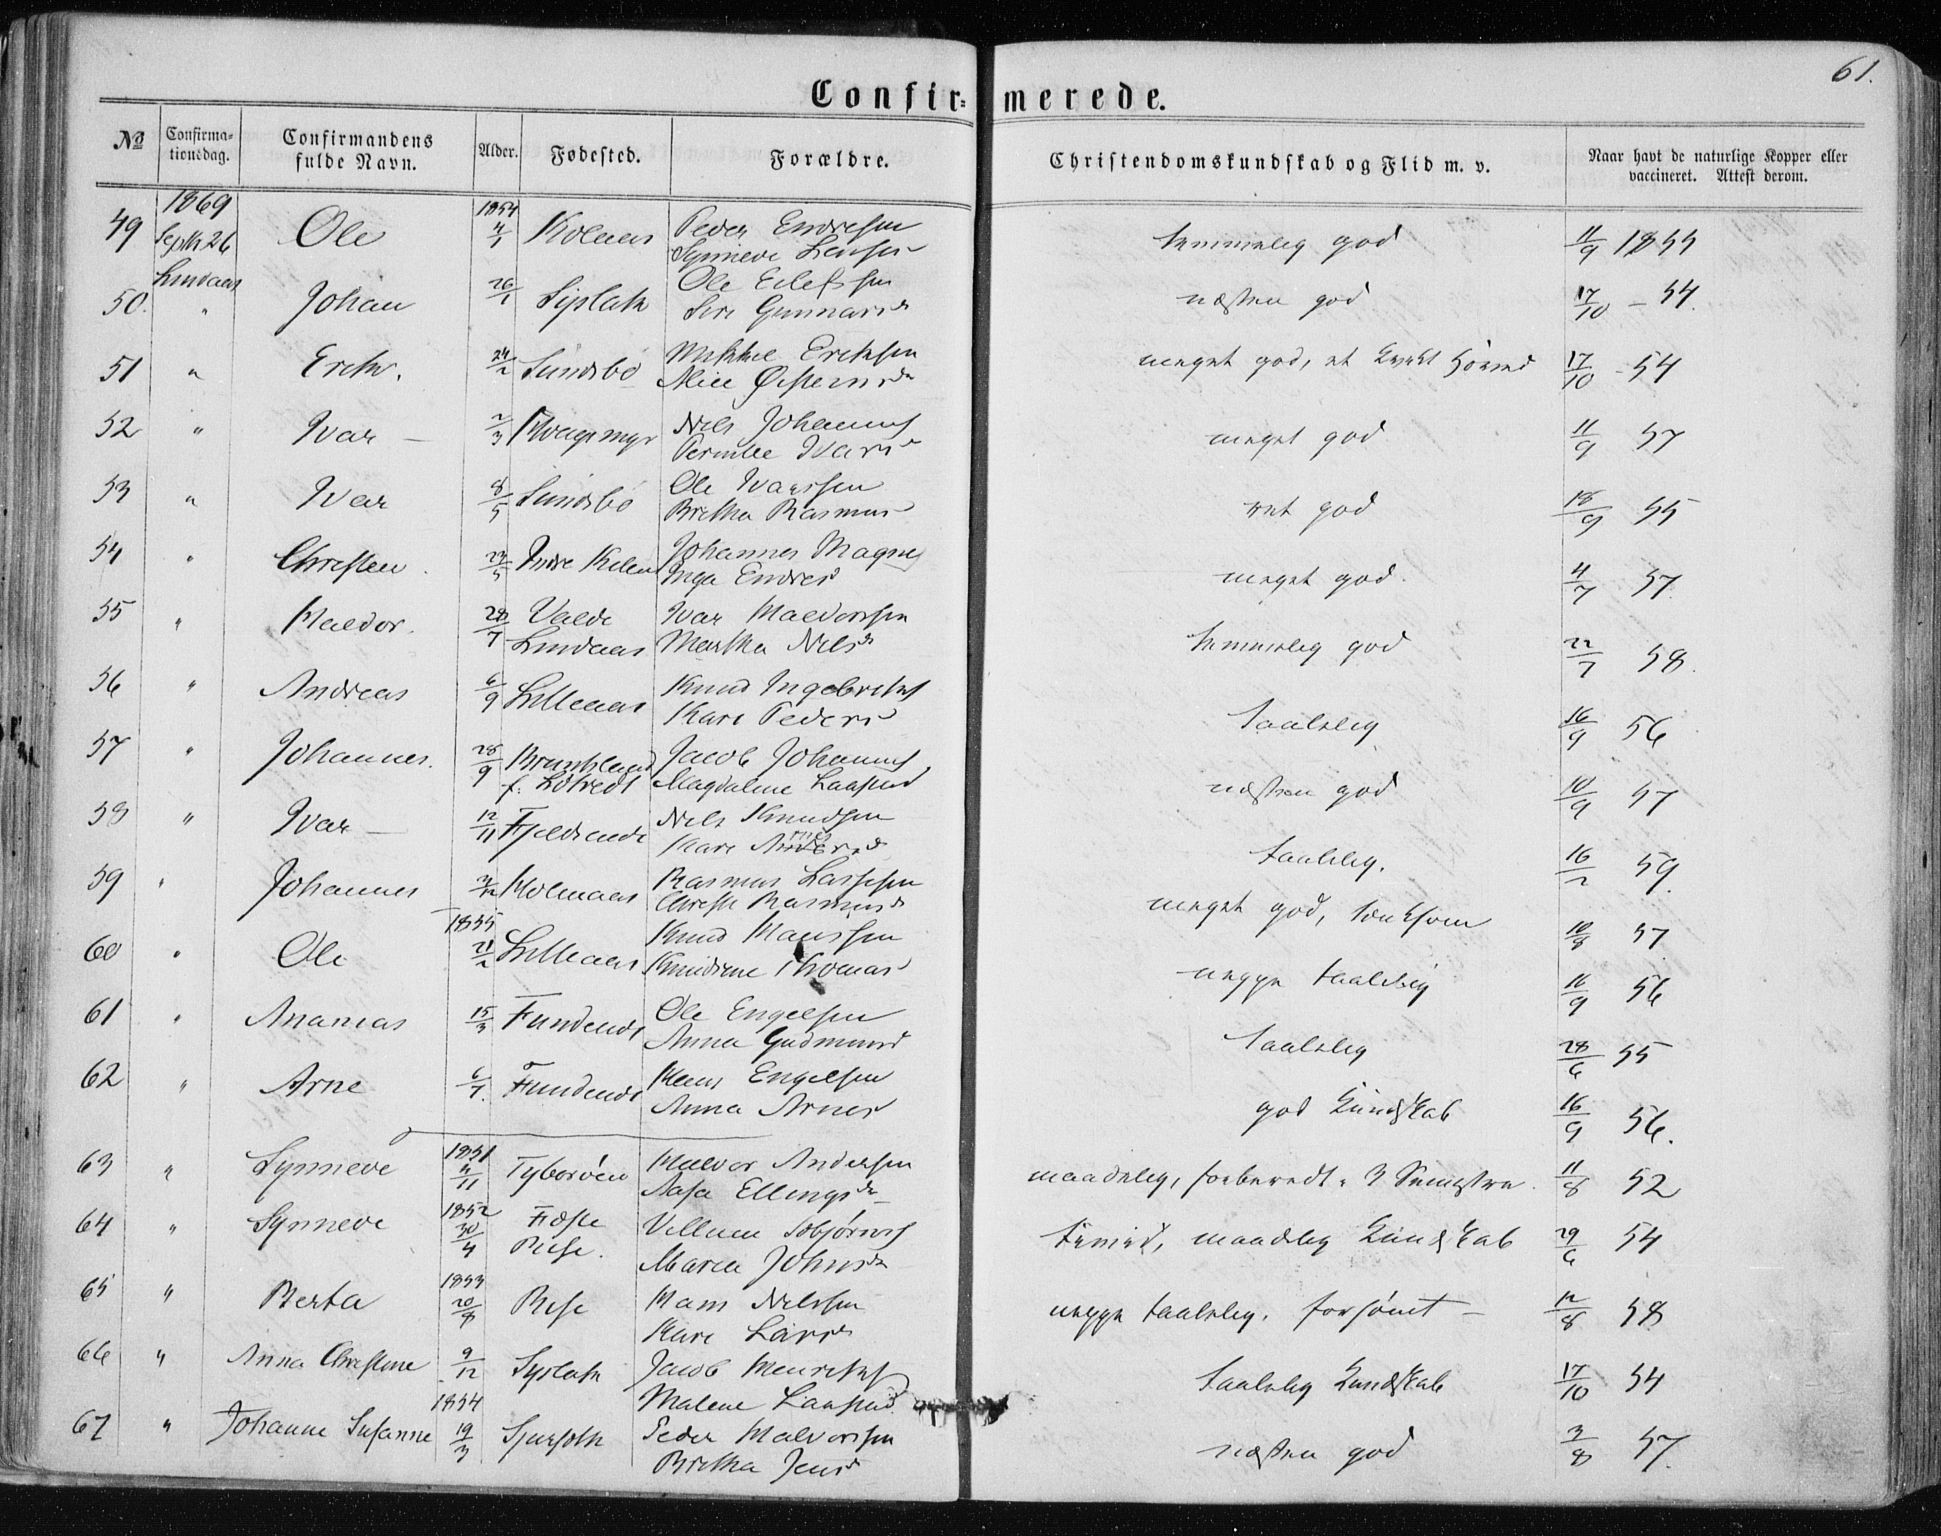 61.
Confir= merede.
№ Confirma=tionsdag. Confirmandens fulde Navn. Alder. Fødested. Forældre. Christendomskundskab og Flid m. v. Naar havt de naturlige Kopper eller vaccineret. Attest derom.
1869 1854
49 Septr 26 Ole 4/1 Peder Endresen temmelig god 11/9 1855
Synneve
Lindaas
50. " Johan 26/1 Ole Eilefssen næsten god 17/10 – 54.
Siri Gunnarsd
51 " Erik. 24/2 Sundsbö Mikkel Eriksen meget god, et 17/10 – 54
52 " Ivar – 2/3 Nils Johannes meget god 11/9 57
Pernille Ivarsd
53 " Ivar 8/5 Sundsbö Ole Ivarssen ret god 18/9 55
Britha Rasmusd
54 " Christen. 23/5 Indre Johannes Magnes meget god. 4/7 57.
Inga Endresd
55 " Haldor. 28/7 Valde Ivar Haldorssen temmelig god 22/7 58.
Lindaas Martha Nilsd
56 " Andreas 6/9 Lilleaas Knud Ingebrigts taalelig 16/9 56
Kari Pedersd
57 " Johannes. 28/9 Jacob Johannes næsten god 10/9 57
f. Magdalene
58 " Ivar – 12/11 Fjeldsende Nils Knudsen taalelig. 16/2 59.
Kari
59 " Johannes 3/12 Holmaas Rasmus Lassesen meget god, 10/8 57
Rasmusd
1855
60 " Ole 21/2 Lilleaas Knud Hanssen neppe taalelig 16/9 56
Knudrine Thomasd
61 " Ananias 15/3 Fundend Ole Engelsen taalelig 28/6 55
Anna Gudmund
62 " Arne 6/7. Fundend Hans Engelsen god Kundskab 16/9 56.
Anna Arnesd
1851
63 " Synneve 4/11 Haldor Andersen maadelig, forberedt i 3 Semestre. 11/8 52
Aasa Ellingsdr
1852
64 " Synneve 30/4 Fæste Villum maadelig Kundskab 29/6 54
Riise. Maria Johnsdr
1853
65 " Berta 20/8 Rise Hans Nilssen neppe taalelig. forsömt – 12/8 58
Kari Larsd
66 " Anna Christine 9/12 Jacob Henriks taalelig Kundskab 17/10 54
Malene
1854
67 " Johanne Susanne 19/3 Peder Halvorsen næsten god 3/8 57.
Britha Jensd